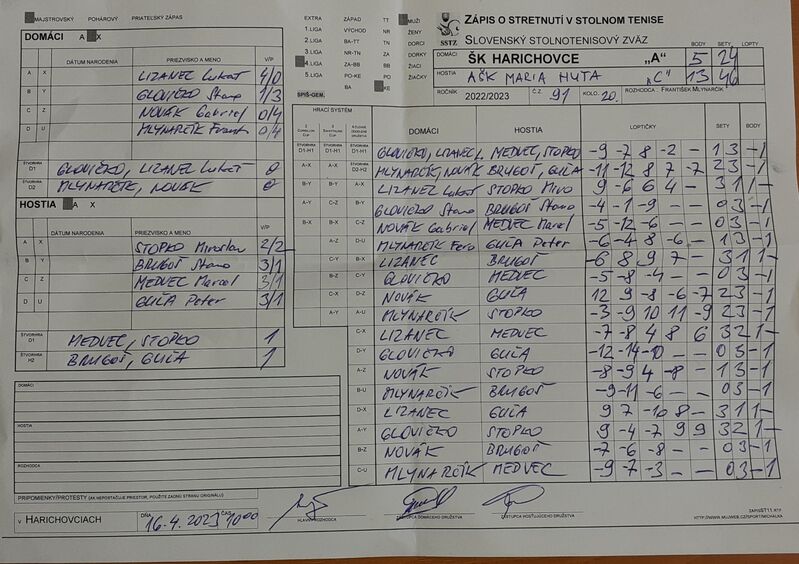 MAJSTROVSKÝ POHÁROVÝ PRIATEĽSKÝ ZÁPAS
DOMÁCI A X
DÁTUM NARODENIA PRIEZVISKO A MENO V/P
A X LIZANEC Lukáš 4/0
B Y GLOVIČKO Stano 1/3
C Z NOVÁK Gabriel 0/4
D U MLYNARČÍK Frant 0/4
ŠTVORHRA D1 GLOVIČKO, LIZANEC Lukáš 0
ŠTVORHRA D2 MLYNARČÍK, NOVÁK 0
HOSTIA A X
DÁTUM NARODENIA PRIEZVISKO A MENO V/P
A X STOPKO Miroslav 2/2
B Y BRUGOŠ Stano 3/1
C Z MEDVEC Marcel 3/1
D U GUĽA Peter 3/1
ŠTVORHRA MEDVEC, STOPKO 1
ŠTVORHRA H2 BRUGOŠ, GUĽA 1
DOMÁCI
HOSTIA
ROZHODCA
PRIPOMIENKY/PROTESTY (AK NEPOSTAČUJE PRIESTOR, POUŽITE ZADNÚ STRANU ORIGINÁLU)
V HARICHOVCIACH DŇA 16.4.2023 ČAS 10:00
HLAVNÝ ROZHODCA ZÁSTUPCA DOMÁCEHO DRUŽSTVA ZÁSTUPCA HOSŤUJÚCEHO DRUŽSTVA
EXTRA ZÁPAD TT MUŽI
1.LIGA VÝCHOD NR ŽENY
2.LIGA BA-TT TN DORCI
3.LIGA NR-TN ZA DORKY
4.LIGA ZA-BB BB ŽIACI
5.LIGA PO-KE PO ŽIAČKY
BA KE
SPIŠ-GEM.
SSTZ
ZÁPIS O STRETNUTÍ V STOLNOM TENISE
SLOVENSKÝ STOLNOTENISOVÝ ZVÄZ
BODY SETY LOPTY
DOMÁCI ŠK HARICHOVCE „A" 5 24
HOSTIA AŠK MARIA HUTA „C" 13 46
ROČNÍK 2022/2023 Č.Z. 91 KOLO. 20. ROZHODCA: FRANTIŠEK MLYNARČÍK
HRACÍ SYSTÉM DOMÁCI HOSTIA LOPTIČKY SETY BODY
D1-H1 D1-H1 GLOVIČKO, LIZANEC, MEDVEC, STOPKO -9 -7 8 -2 - 1 3 -1
A-X D2-H2 MLYNARČÍK, NOVÁK BRUGOŠ, GUĽA -11 -12 8 7 -7 2 3 -1
B-Y A-X LIZANEC Lukáš STOPKO Miro 9 -6 6 4 - 3 1 1-
A-Y C-Z B-Y GLOVIČKO Stano BRUGOŠ Stano -4 -1 -9 - - 0 3 -1
B-X B-X C-Z NOVÁK Gabriel MEDVEC Marcel -5 -12 -6 - - 0 3 -1
A-Z D-U MLYNARČÍK Fero GUĽA Peter -6 -4 8 -6 - 1 3 -1
C-Y B-X LIZANEC BRUGOŠ -6 8 9 7 - 3 1 1-
B-Z C-Y GLOVIČKO MEDVEC -5 -8 -4 - - 0 3 -1
C-X D-Z NOVÁK GUĽA 12 9 -8 -6 -7 2 3 -1
A-Y A-U MLYNARČÍK STOPKO -3 -9 10 11 -9 2 3 -1
C-X LIZANEC MEDVEC -7 -8 4 8 6 3 2 1-
D-Y GLOVIČKO GUĽA -12 -14 -10 - - 0 3 -1
A-Z NOVÁK STOPKO -8 -9 4 -8 - 1 3 -1
B-U MLYNARČÍK BRUGOŠ -9 -11 -6 - - 0 3 -1
D-X LIZANEC GUĽA 9 7 -10 8 - 3 1 1-
A-Y GLOVIČKO STOPKO 9 -4 -7 9 9 3 2 1-
B-Z NOVÁK BRUGOŠ -7 -6 -8 - - 0 3 -1
C-U MLYNARČÍK MEDVEC -9 -7 -3 - - 0 3 -1